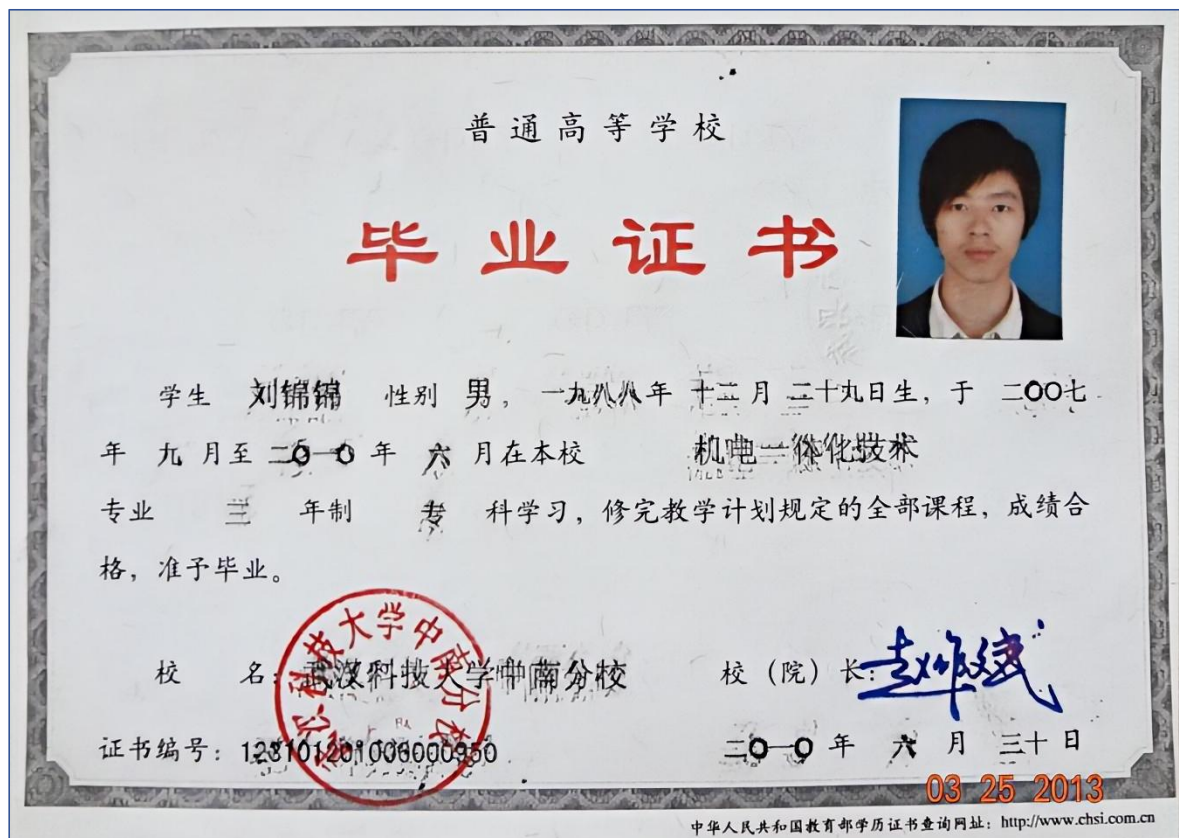 普通高等学校
毕业证书
学生 刘锦锦 性别 男，一九八八年 十二月 二十九日生，于 二〇〇七
年 九 月至 二〇一〇 年 六 月在本校 机电一体化技术
专业 三 年制 专 科学习，修完教学计划规定的全部课程，成绩合
格，准予毕业。
校 名：武汉科技大学中南分校 校（院）长：赵作斌
科技大学中南分校
证书编号：123101201006000950 二〇一〇 年 六 月 三十日
03 25 2013
中华人民共和国教育部学历证书查询网址：http://www.chsi.com.cn